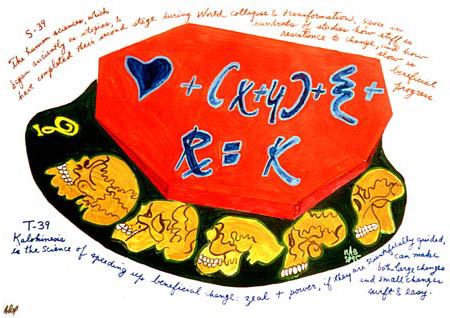 S-39
The human sciences, which
began anciently as utopias, &
have completed their second stage during World Collapse & Transformation,
hundreds of studies how stuff is
resistance to change, and how
slow is
beneficial
progress
♥ + (x+y) + ξ +
℞ = K
T-39
Kalokinesis
is the Science of speeding up beneficial change: zeal + power, if they are scientifically guided,
can make
both large changes
and small changes
swift & easy.